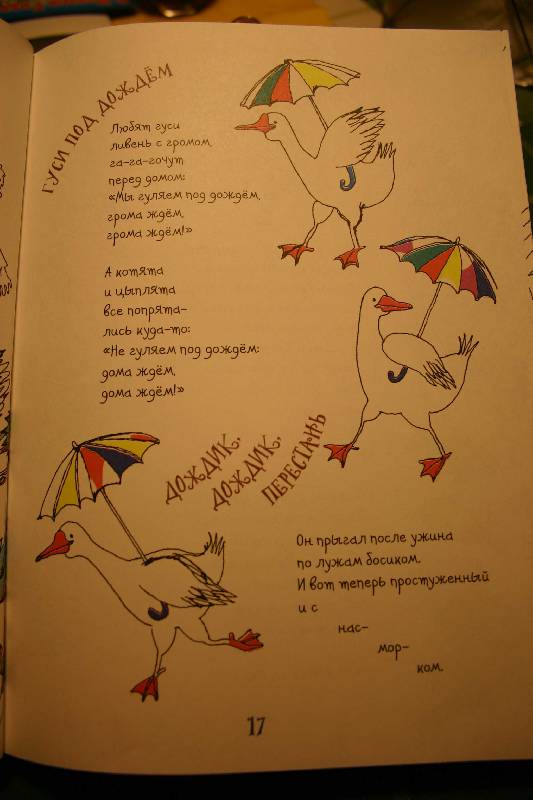 ГУСИ ПОД ДОЖДЁМ
Любят гуси
ливень с громом,
га-га-гочут
перед домом:
«Мы гуляем под дождём,
грома ждём,
грома ждём!»
А котята
и цыплята
все попрята-
лись куда-то:
«Не гуляем под дождём:
дома ждём,
дома ждём!»
ДОЖДИК,
ДОЖДИК,
ПЕРЕСТАНЬ
Он прыгал после ужина
по лужам босиком.
И вот теперь простуженный
и с
нас-
мор-
ком.
17